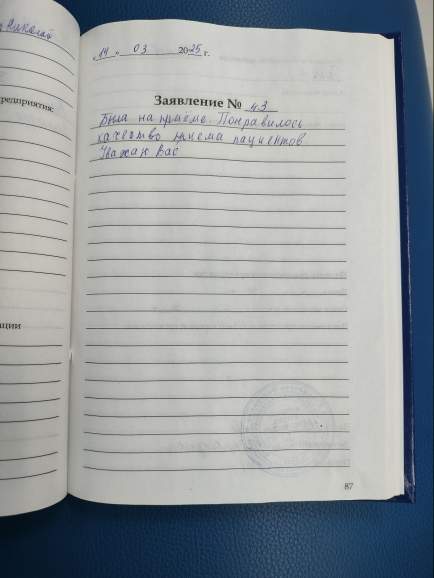 "14" 03 2025 г.
редприятия:
Заявление № 43
Была на приёме. Понравилось
качество приема пациентов
Уважаю Вас
ции
87